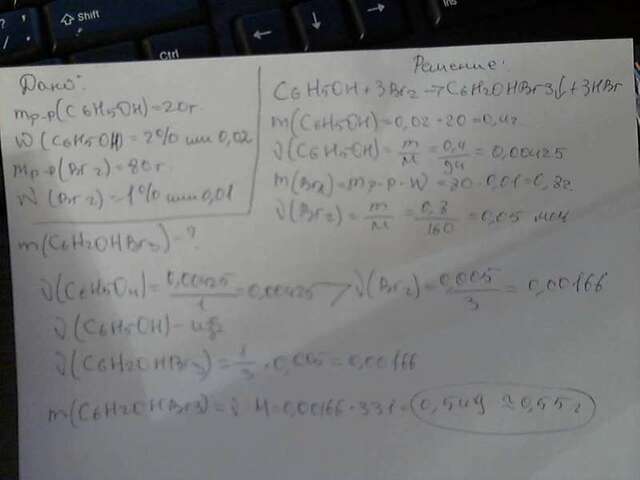 Shift
Ctrl
Ins
Дано:
mр-р(C6H5OH)=20г.
W(C6H5OH)=2% или 0,02
mр-р(Br2)=80г.
W(Br2)=1% или 0,01
m(C6H2OHBr3)-?
Решение:
C6H5OH+3Br2→C6H2OHBr3↓+3HBr
m(C6H5OH)=0,02·20=0,4г
ν(C6H5OH)=m/M=0,4/94=0,00425
m(Br2)=mр-р·W=80·0,01=0,8г.
ν(Br2)=m/M=0,8/160=0,05 моль
ν(C6H5OH)=0,00425/1=0,00425 > ν(Br2)=0,005/3=0,00166
ν(C6H5OH)-изб
ν(C6H2OHBr3)=1/3·0,005=0,00166
m(C6H2OHBr3)=ν·M=0,00166·331=0,549≈0,55г